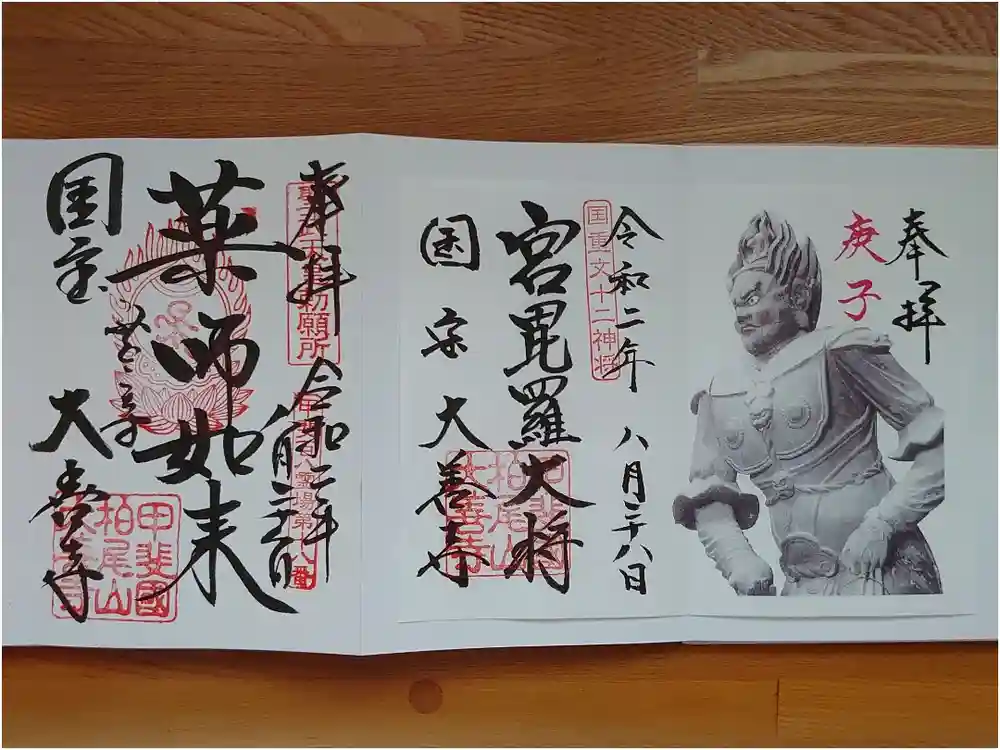 奉拝
庚子
令和二年 八月二十八日
国重文十二神将
宮毘羅大将
国宗 大善寺
甲斐國
柏尾山
大善寺
奉拝 令和二年
聖武天皇勅願所
薬師如来
国宝
大善寺
甲斐國
柏尾山
大善寺